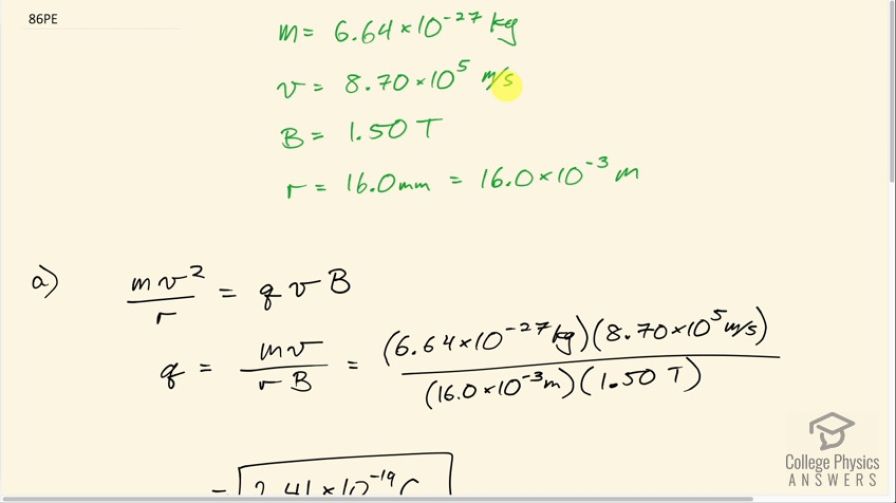 86PE
m = 6.64 × 10⁻²⁷ kg
v = 8.70 × 10⁵ m/s
B = 1.50 T
r = 16.0mm = 16.0 × 10⁻³ m
a) mv²/r = qvB
q = mv/rB = (6.64 × 10⁻²⁷ kg)(8.70 × 10⁵ m/s)/(16.0 × 10⁻³ m)(1.50 T)
= 2.41 × 10⁻¹⁹ C
College Physics
ANSWERS